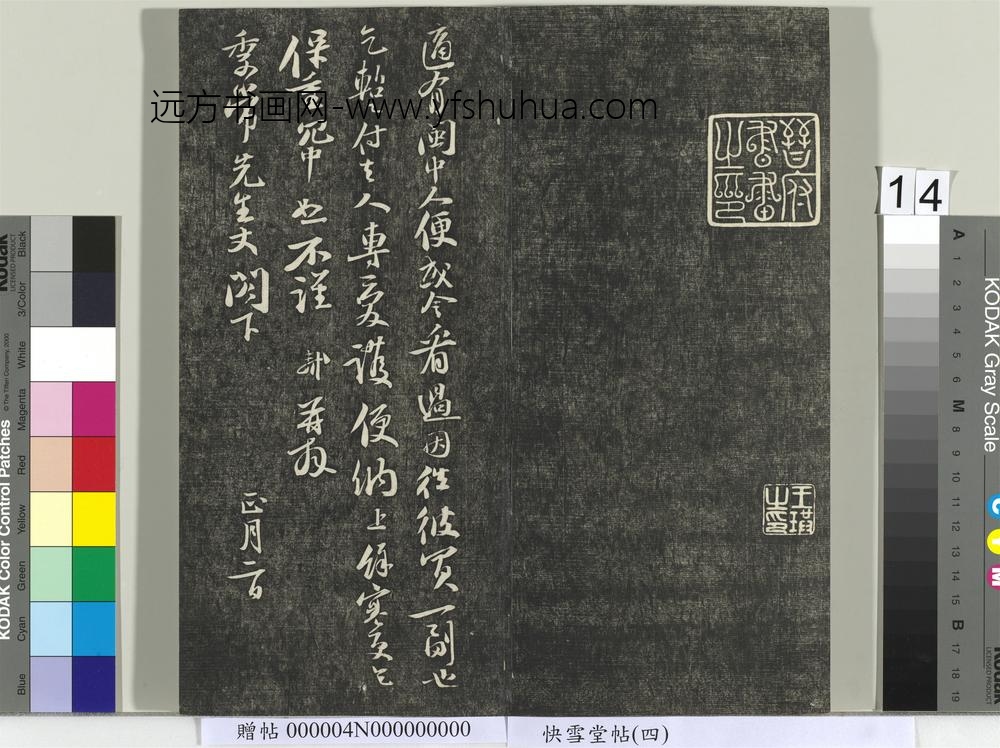 晉府
書畫
之印
適有閩中人便或令看過因往彼買一副也
乞暫付去人專愛護便納上餘寒更乞
保重冗中恕不謹 軾再拜
季常先生丈閣下 正月二日
远方书画网-www.yfshuhua.com
14
贈帖 000004N000000000
快雪堂帖(四)
KODAK Color Control Patches
© The Tiffen Company, 2000
Kodak
LICENSED PRODUCT
Blue
Cyan
Green
Yellow
Red
Magenta
White
3/Color
Black
KODAK Gray Scale
A 1 2 3 4 5 6 M 8 9 10 11 12 13 14 15 B 17 18 19
C
Y
M